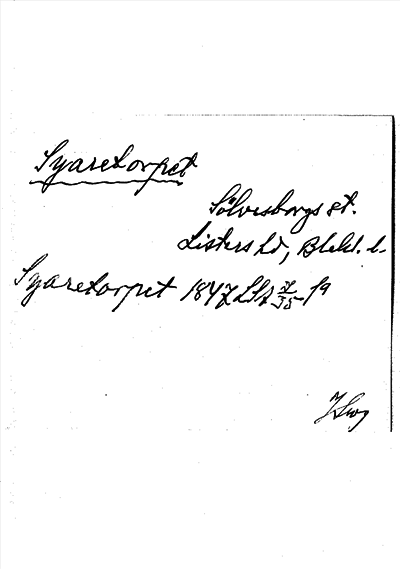 Syaretorpet
Sölvesborgs st.
Listers hd, Blek. l.
Syaretorpet 1847 LSA